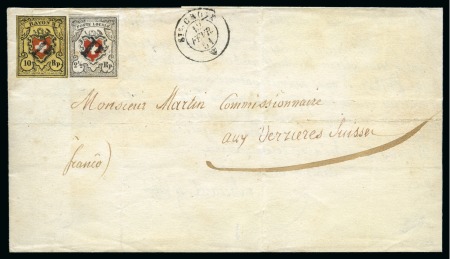 RAYON II
POSTE LOCALE
10 Rp
2½ Rp
STE CROIX
19
FEVR
51
Monsieur Martin Commissionnaire
aux Verrieres Suisses
à
franco)